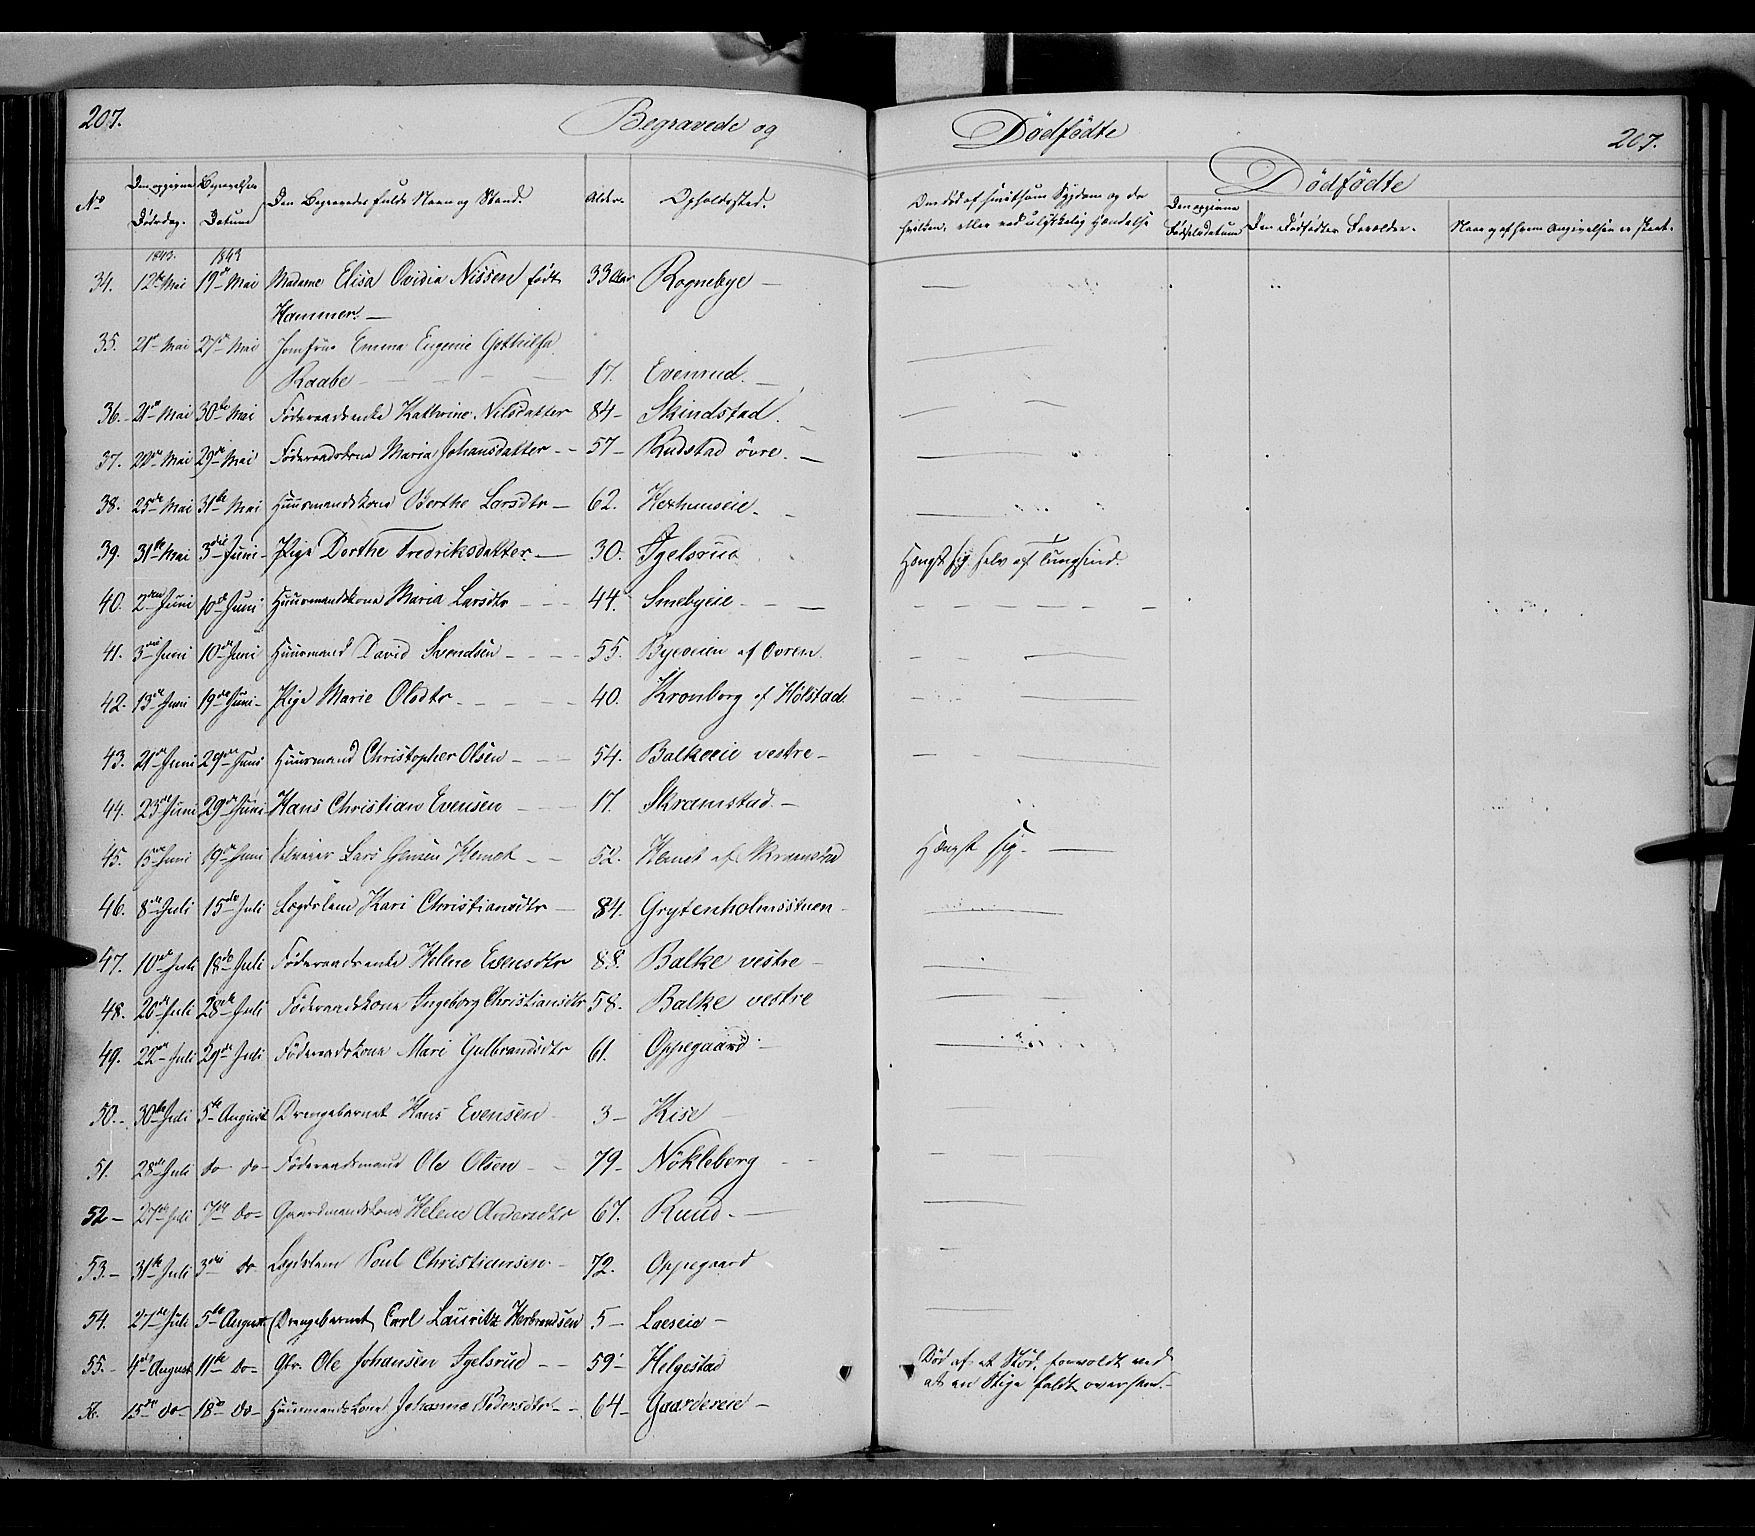 207.
Begravede og
Dödfödte
207.
No
Den opgivne Dödsdag.
Begravelses Datum
Den Begravedes fulde Navn og Stand.
Alder.
Opholdssted.
Om död af smitsom Sygdom og da hvilken, eller ved ulykkelig Hændelse
Dödfödte
Den opgivne Födselsdatum
Den Dödfödtes Forældre.
Naar og af hvem Angivelsen er skeet.
1843. 1843
34. 12te Mai 19de Mai Madame Elisa Ovidia Nissen födt 33 Aar Rognebye —
Hammer. —
35. 21de Mai 27de Mai Jomfrue Emma Eugenie Gothilfa
Raabe — 17. Evenrud. —
36. 21de Mai 30te Mai Föderaadsenke Kathrine Nilsdatter 84 - Skindstad.
37. 22de Mai 29de Mai Föderaadskone Maria Johansdatter - 57 - Rudstad övre. —
38. 25de Mai 31te Mai Huusmandskone Berthe Larsdtr — 62. Hexhuuseie -
39. 31te Mai 3die Juni - Pige Dorthe Fredriksdatter. — 30. Igelsrud Hængt sig selv af Tungsind.
40. 2den Juni 10de Juni Huusmandskone Maria Larsdtr - - - 44. Smebyeie - - —
41. 3die Juni 10de Juni Huusmand David Svendsen - - - - 55. Byeveien af Ovren.
42. 13de Juni 19de Juni - Pige Marie Olsdtr. - - - - 40. Kronborg af Hölstad.
43. 21de Juni 29de Juni Huusmand Christopher Olsen - - - 54. Balkeeie vestre -
44. 23de Juni 29de Juni Hans Christian Evensen - - - 17. Skramstad —
45. 15de Juni 19de Juni Selveier Lars Jensen Hemet - - 52. Hemet af Skramstad Hængt sig. —
46. 8de Juli 15de Juli Lægdslem Kari Christiansdtr — 84. Grytenholmsstuen -
47. 10de Juli 18de Juli Föderaadsenke Helene Evensdtr 88. Balke vestre -
48. 20de Juli 28de Juli Föderaadskone Ingeborg Christiansdtr 58. Balke vestre
49. 22de Juli 29de Juli Föderaadskone Mari Gulbrandsdtr 61. Oppegaard -
50. - 30te Juli 5te August Drengebarnet Hans Evensen 3 - Kise —
51. 28de Juli do - do - Föderaadsmand Ole Olsen - - 79 - Nökleberg - -
52 - 27de Juli 7de do - Gaardmandskone Helene Andersdtr 67. Ruud. —
53. - 31te Juli 3die do Lægdslem Poul Christiansen. - 72. Oppegaard
54. 27de Juli 5te August Drengebarnet Carl Lauritz Herbrandsen 5 - Laeseie -
55. - 4de August 11te do - Gbr. Ole Johansen Igelsrud - - 59 - Helgestad Död af et Stöd, forvoldt ved
at en Stige faldt over ham. -
56. 15de do - 18de do - Huusmandskone Johanne Pedersdtr - - 64 - Gaardereie -